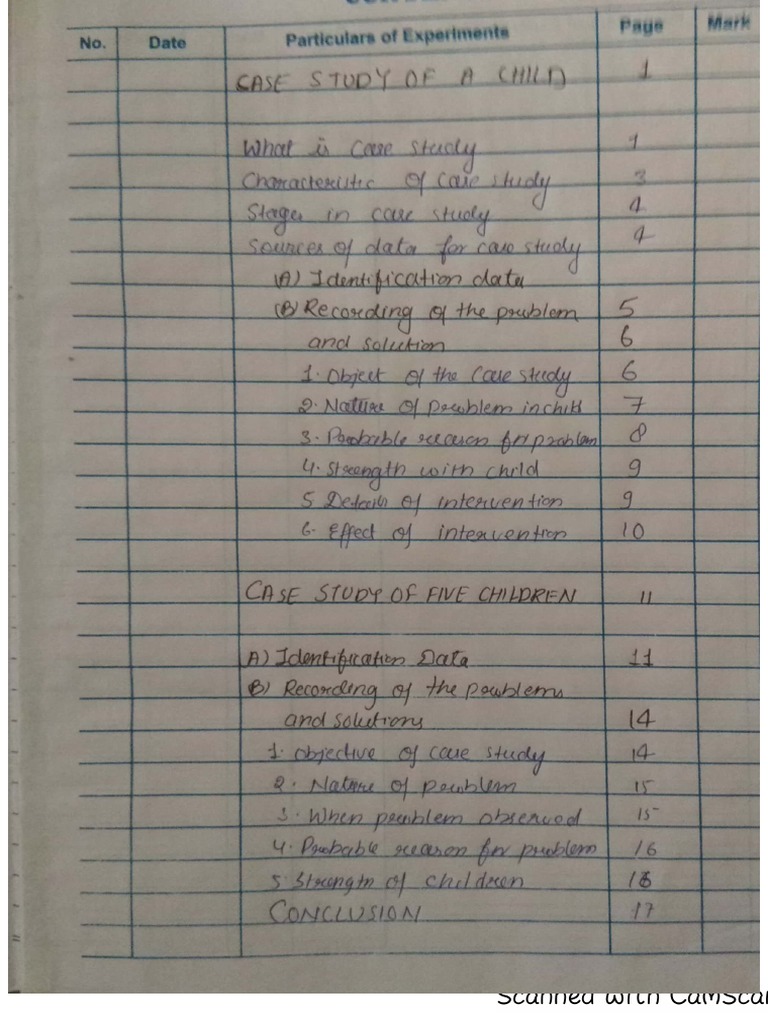 No. Date Particulars of Experiments Page Mark
CASE STUDY OF A CHILD 1
What is case study 1
Characteristic of case study 3
Stages in case study 4
Sources of data for case study 4
(A) Identification data
(B) Recording of the problem 5
and solution 6
1. Object of the case study 6
2. Nature of problem in child 7
3. Probable reason for problem 8
4. Strength with child 9
5 Details of intervention 9
6. Effect of intervention 10
CASE STUDY OF FIVE CHILDREN 11
A) Identification Data 11
B) Recording of the problems
and solutions 14
1. objective of case study 14
2. Nature of problem 15
3. When problem observed 15
4. Probable reason for problem 16
5. Strength of children 16
CONCLUSION 17
Scanned with CamScan